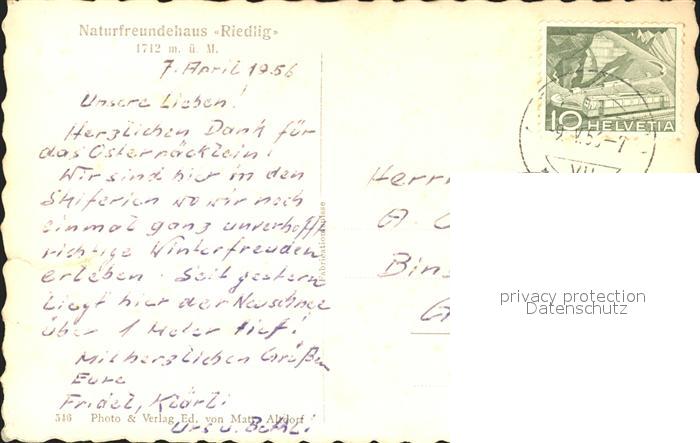 Naturfreundehaus «Riedlig»
1712 m. ü. M.
7. April 1956
Unsere Lieben!
Herzlichen Dank für
das Osterpäcklein!
Wir sind hier in den
Skiferien wo wir noch
einmal ganz unverhofft
richtige Winterfreuden
erleben. Seit gestern
liegt hier der Neuschnee
über 1 Meter tief!
Mit herzlichen Grüßen
Eure
Fridel, Klärli
Urs u.
546 Photo & Verlag Ed. von Matt, Altdorf
Fabrication Suisse
10 HELVETIA
Herrn
A.
privacy protection
Datenschutz